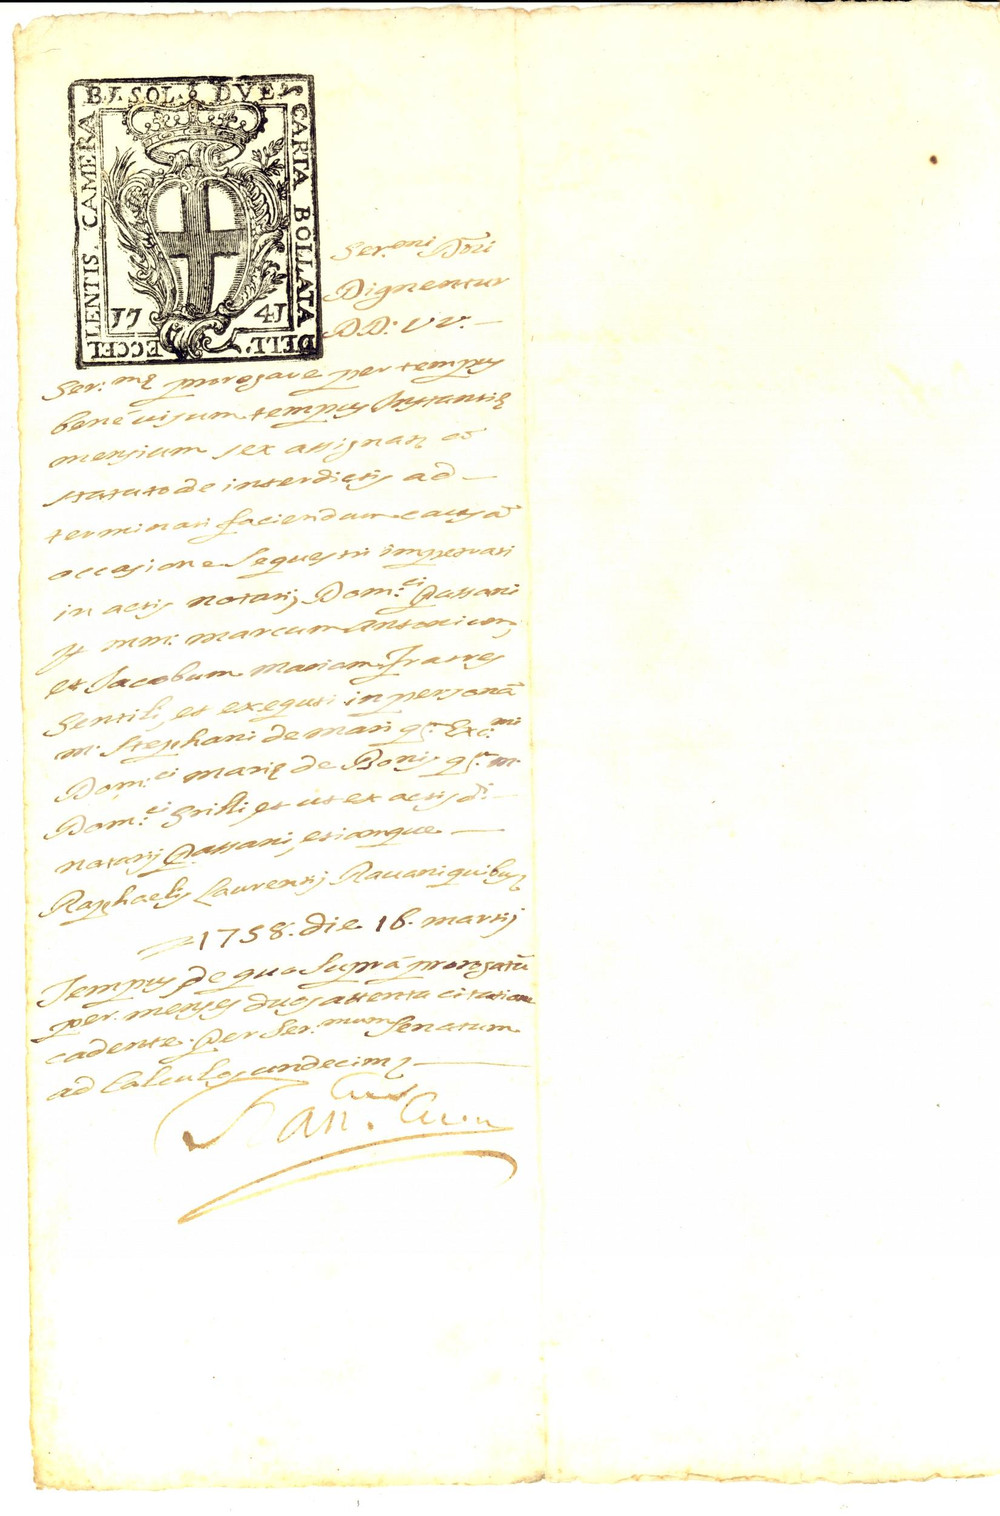 B. SOL. DVE
CARTA BOLLATA
DELL'
ECCEL
LENTIS. CAMERA
17 41
Ser.eni Domi
Dignentur
D.D. VV.
Ser.mę prorogare per tempus
benèvisum tempus Instantię
mensium sex assignatę
statuto de interdictis ad
terminari faciendum causā
occasione sequestri impetrati
in actis notarij Dom.ci Passani
mm. Marcum Antonium
et Jacobum Mariam fratres
Gentili, et exequti in personā
m. Stephani de Mari q. Exc.mi
Dom.ci Marię de Bonis q. m.
Dom.ci Grilli, et ut ex actis d.
notarij Passani, etiamque
Raphaelis Laurentij Ravani quibus
1758. die 16. martij
Tempus de quo suprà prorogatū
per menses duos attenta citatione
cadente. Per Ser.mum Senatum
ad Calculos undecim
Fran.cus